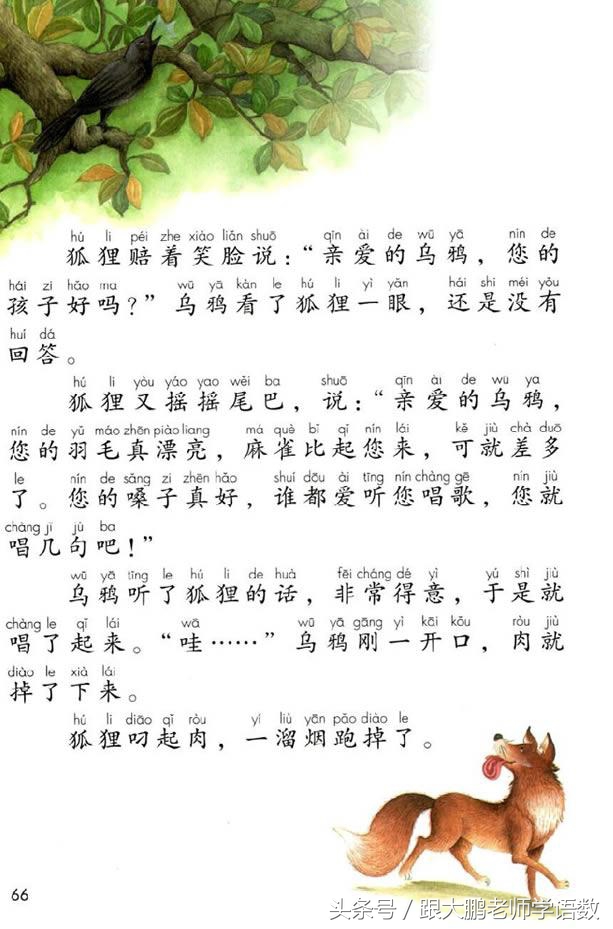 hú li péi zhe xiào liǎn shuō qīn ài de wū yā nín de
狐狸赔着笑脸说：“亲爱的乌鸦，您的
hái zi hǎo ma wū yā kàn le hú li yì yǎn hái shi méi yǒu
孩子好吗？”乌鸦看了狐狸一眼，还是没有
huí dá
回答。
hú li yòu yáo yao wěi ba shuō qīn ài de wū ya
狐狸又摇摇尾巴，说：“亲爱的乌鸦，
nín de yǔ máo zhēn piào liang má què bǐ qǐ nín lái kě jiù chà duō
您的羽毛真漂亮，麻雀比起您来，可就差多
le nín de sǎng zi zhēn hǎo shuí dōu ài tīng nín chàng gē nín jiù
了。您的嗓子真好，谁都爱听您唱歌，您就
chàng jǐ jù ba
唱几句吧！”
wū yā tīng le hú li de huà fēi cháng dé yì yú shì jiù
乌鸦听了狐狸的话，非常得意，于是就
chàng le qǐ lái wā wū yā gāng yì kāi kǒu ròu jiù
唱了起来。“哇……”乌鸦刚一开口，肉就
diào le xià lái
掉了下来。
hú li diāo qǐ ròu yí liù yān pǎo diào le
狐狸叼起肉，一溜烟跑掉了。
66
头条号／跟大鹏老师学语数